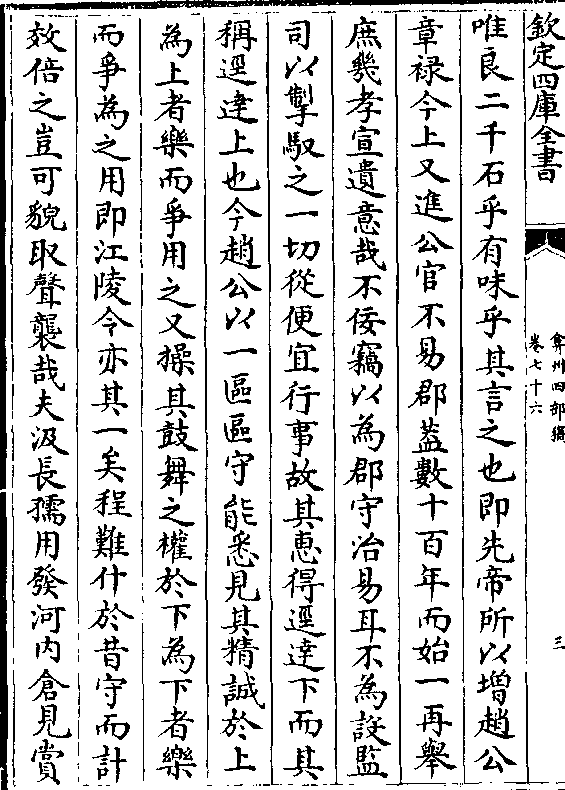 欽定四庫全書
弇州四部稿
卷七十六
三
唯良二千石乎有味乎其言之也即先帝所以增趙公
章禄今上又進公官不易郡葢數十百年而始一再舉
庶幾孝宣遺意哉不佞竊以為郡守治易耳不為設監
司以掣馭之一切從便宜行事故其惠得逕達下而其
稱逕達上也今趙公以一區區守能悉見其精誠於上
為上者樂而爭用之又操其鼓舞之權於下為下者樂
而爭為之用即江陵令亦其一矣程難什於昔守而計
效倍之豈可貌取聲襲哉夫汲長孺用發河内倉見賞